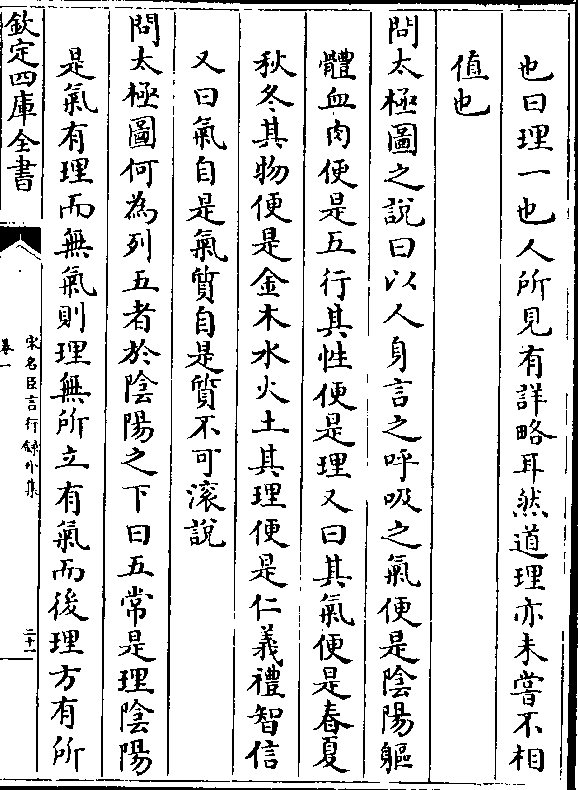 也曰理一也人所見有詳略耳然道理亦未嘗不相
值也
問太極圖之說曰以人身言之呼吸之氣便是陰陽軀
體血肉便是五行其性便是理又曰其氣便是春夏
秋冬其物便是金木水火土其理便是仁義禮智信
又曰氣自是氣質自是質不可滚說
問太極圖何為列五者於陰陽之下曰五常是理陰陽
是氣有理而無氣則理無所立有氣而後理方有所
欽定四庫全書
宋名臣言行録外集
卷一
二十一